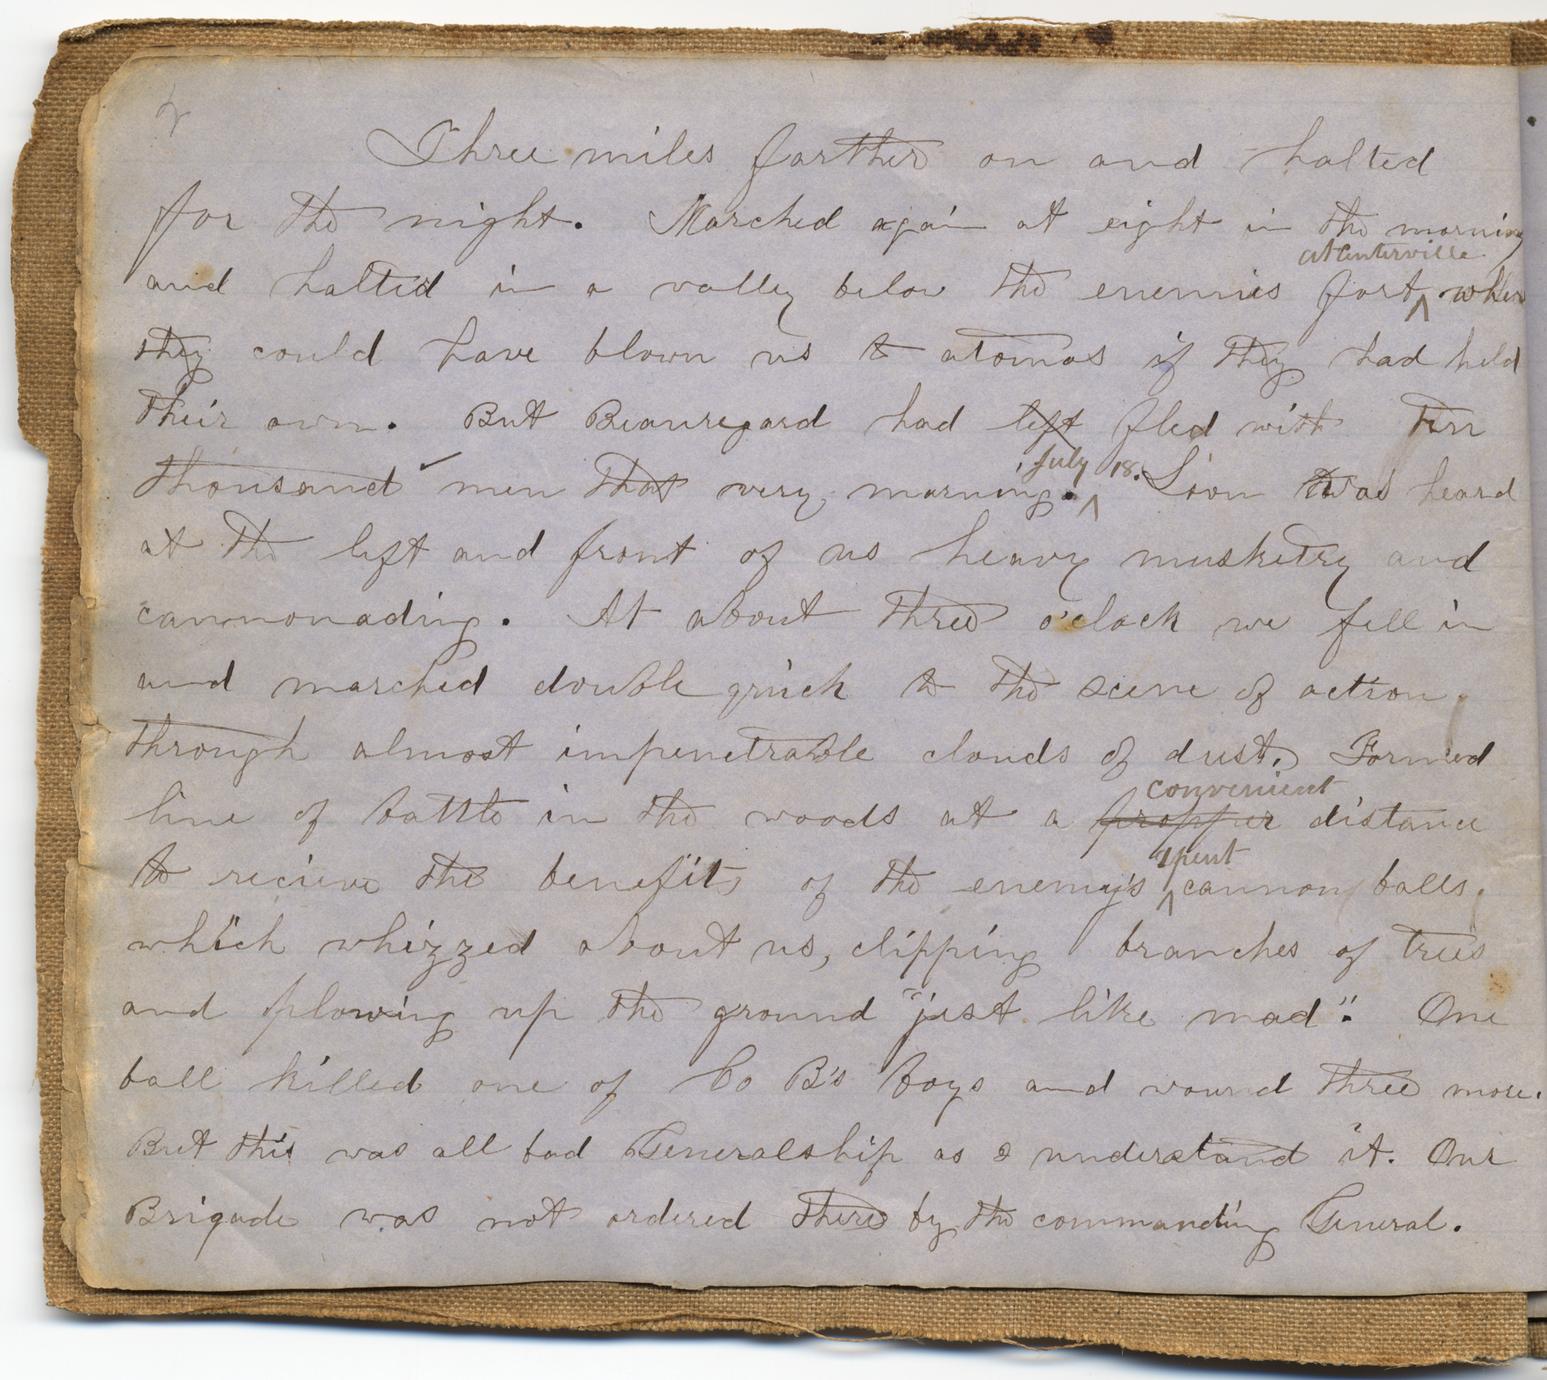 2
Three miles farther on and halted
for the night. Marched again at eight in the morning
at Centerville
and halted in a valley below the enemies fort, when
they could have blown us to atomos if they had held
their own. But Beauregard had left fled with Ten
July 18.
thousand men that very morning. Soon was heard
at the left and front of us heavy musketry and
cannonading. At about three o'clock we fell in
and marched double quick to the scene of action
through almost impenetrable clouds of dust. Formed
convenient
line of battle in the woods at a propper distance
spent
to recieve the benefits of the enemy's cannon balls,
which whizzed about us, clipping branches of trees
and plowing up the ground "just like mad". One
ball killed one of Co B's boys and wound three more.
But this was all bad Generalship as I understand it. Our
Brigade was not ordered there by the commanding General.